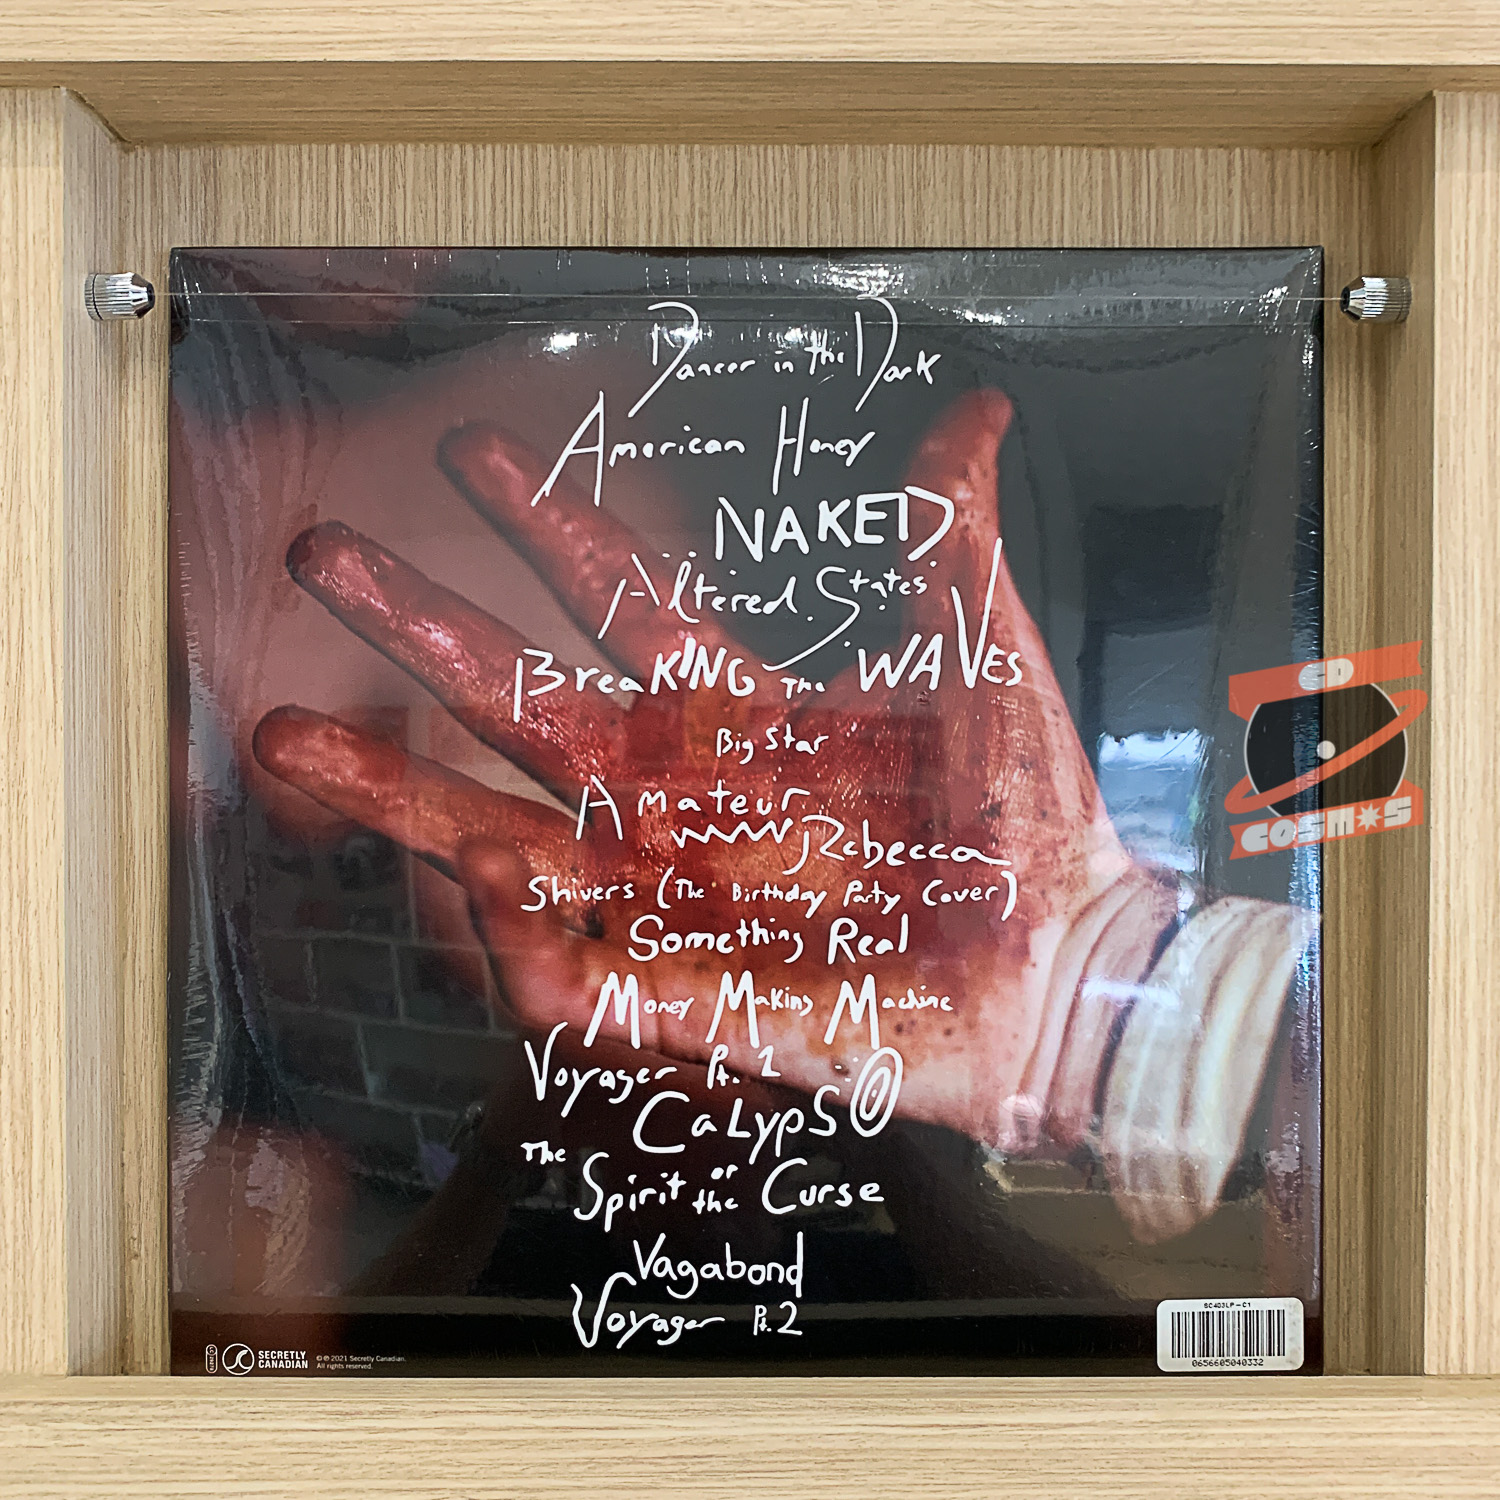 Dancer in the Dark
American Honey
NAKED
Altered States
BreaKING The WAVES
Big Star
Amateur
Rebecca
Shivers (The Birthday Party Cover)
Something Real
Money Making Machine
Voyager Pt. 2
CaLypSO
The Spirit or the Curse
Vagabond
Voyager Pt. 2
SECRETLY CANADIAN
℗ © 2021 Secretly Canadian.
All rights reserved.
SC403LP-C1
0656605040332
CD
COSMOS